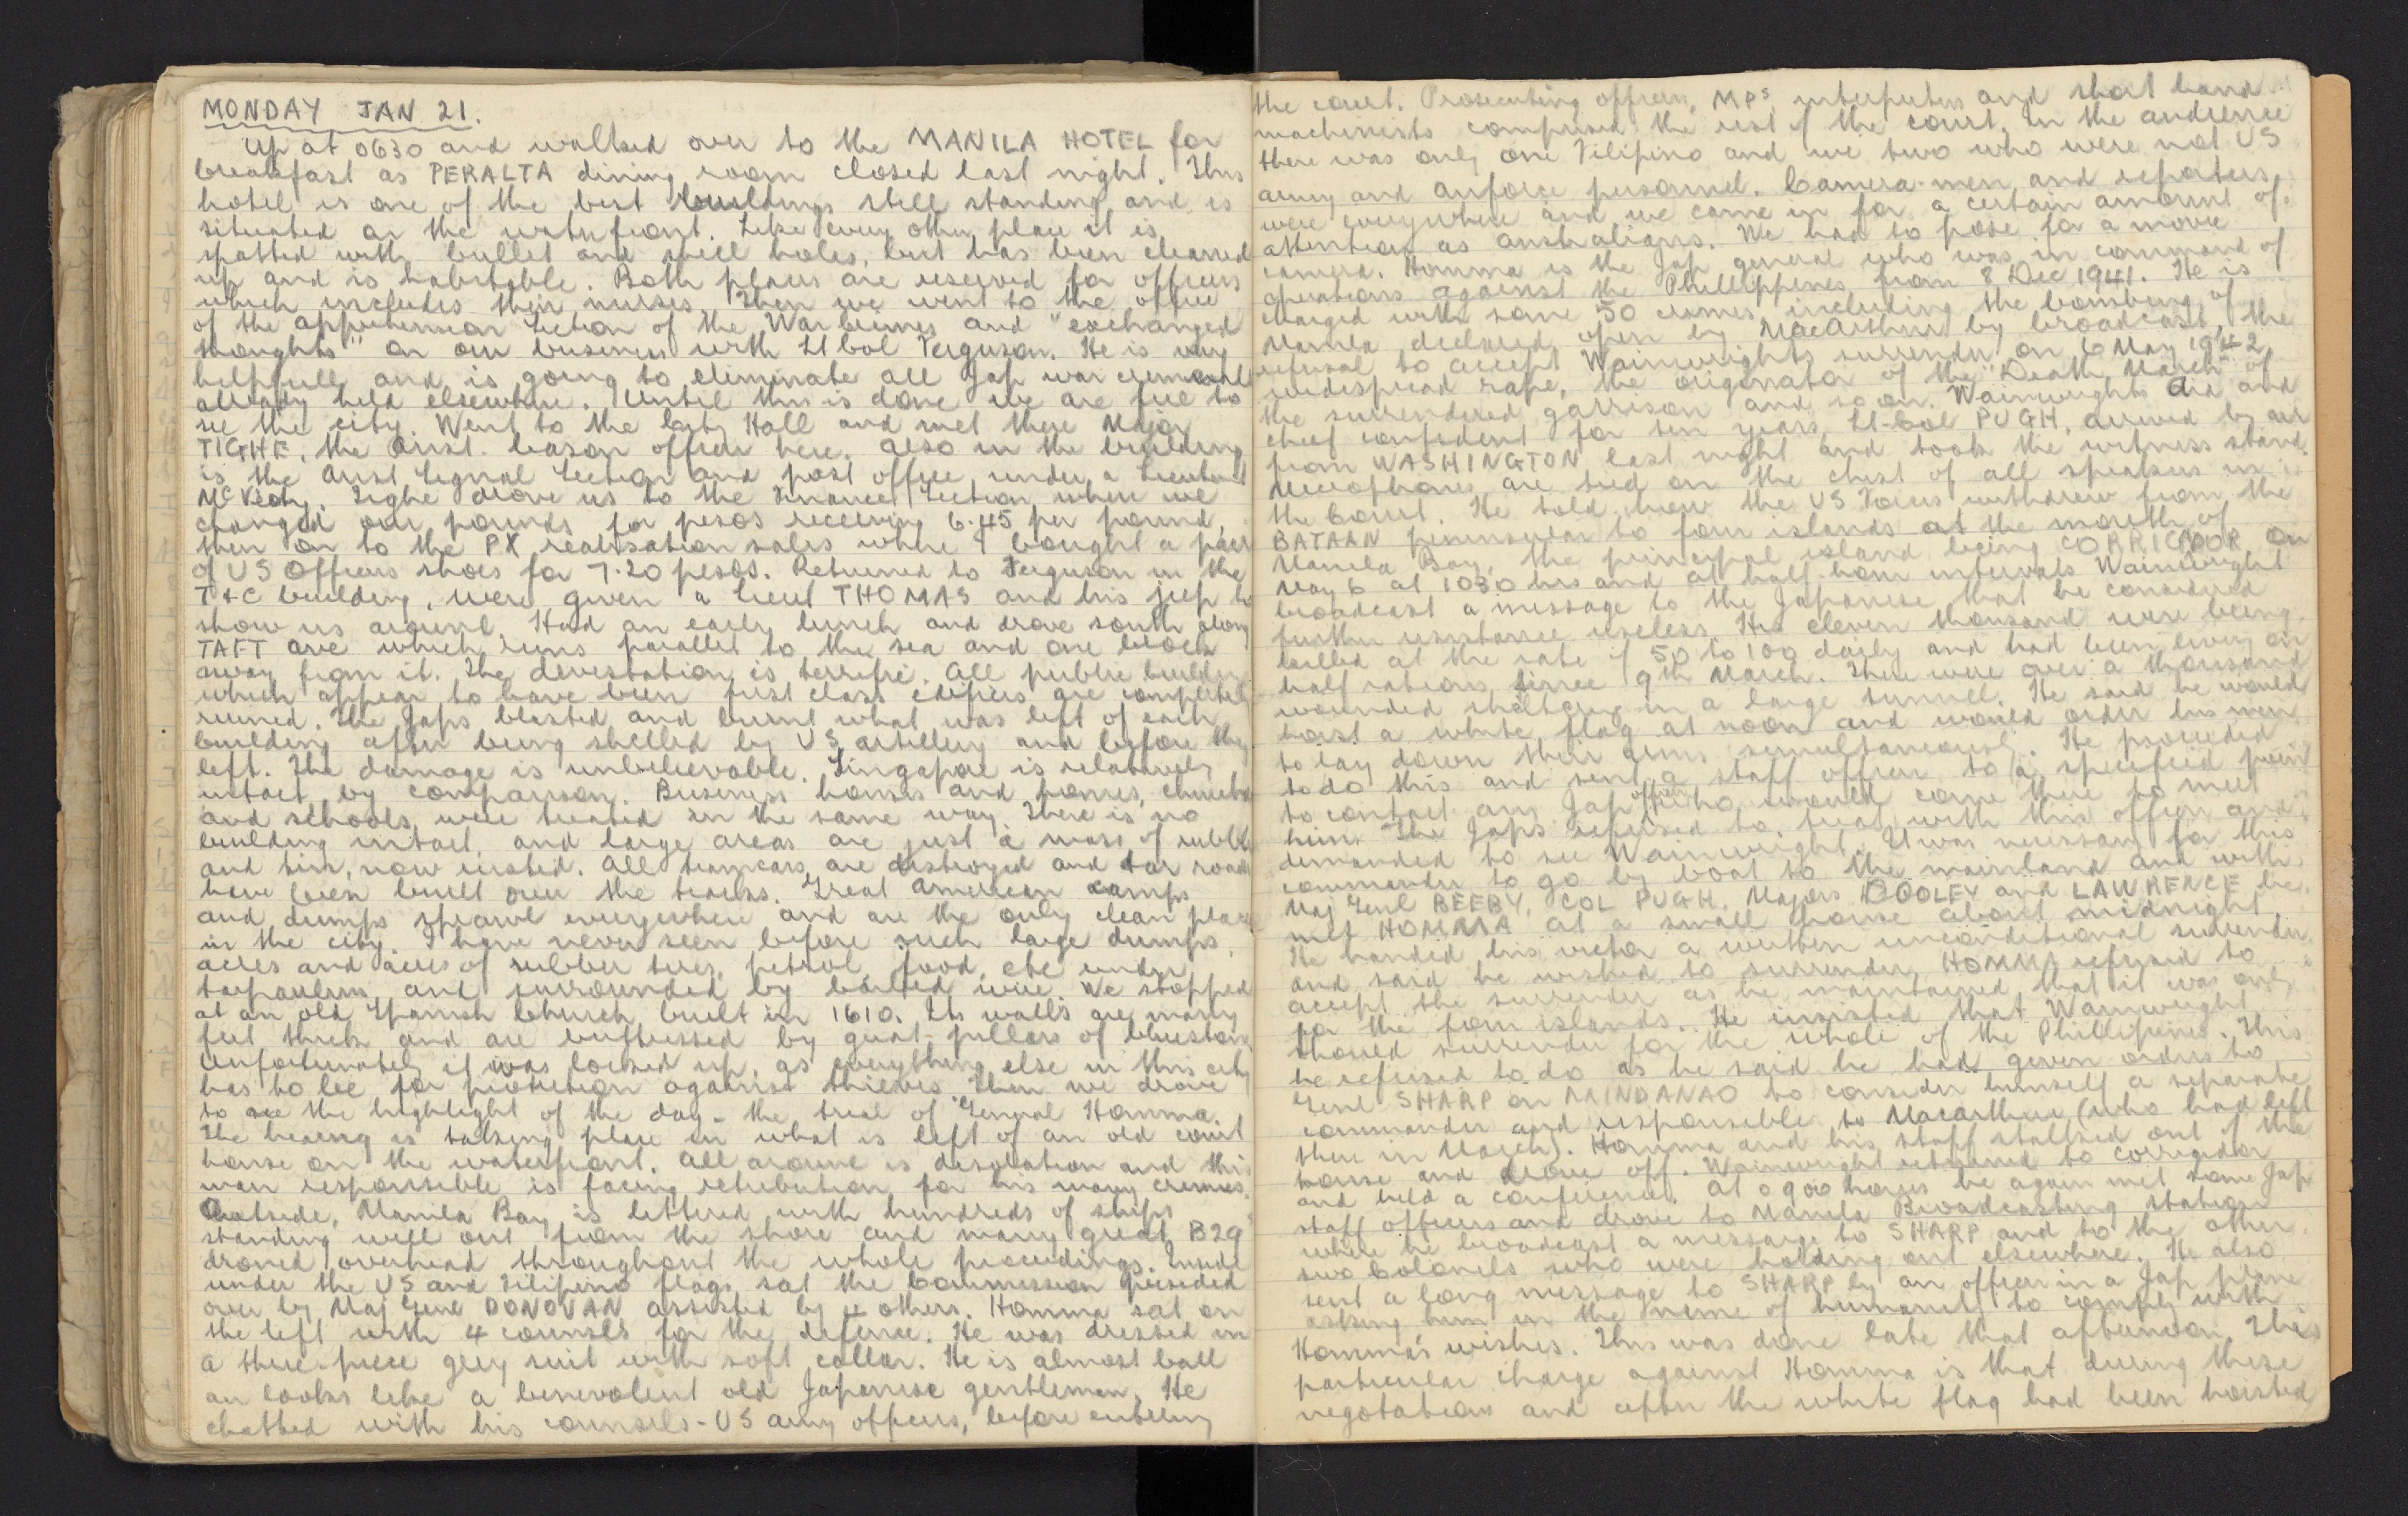 MONDAY JAN 21.
Up at 0630 and walked over to the MANILA HOTEL for
breakfast as PERALTA dining room closed last night. This
hotel is one of the best buildings still standing and is
situated on the waterfront. Like every other place it is
spotted with bullet and shell holes, but has been cleaned
up and is habitable. Both places are reserved for officers
which includes their nurses. Then we went to the office
of the apprehension section of the War Crimes and "exchanged
thoughts" on our business with Lt Col Ferguson. He is very
helpfull and is going to eliminate all Jap war criminals
already held elsewhere. Until this is done we are free to
see the city. Went to the City Hall and met there Major
TIGHE, the Aust. liason officer here. Also in the building
is the Aust Signal Section and post office under a Lieutenant
McVeety. Tighe drove us to the Finance Section where we
changed our pounds for pesos receiving 6.45 per pound,
then on to the PX realisation sales where I bought a pair
of US Officers shoes for 7.20 pesos. Returned to Ferguson in the
T+C building, were given a Lieut THOMAS and his jeep to
show us around. Had an early lunch and drove south along
TAFT ave which runs parallel to the sea and one block
away from it. The devestation is terrific. All public buildings
which appear to have been first class edifices are completely
ruined. The Japs blasted and burnt what was left of each
building after being shelled by US artillery and before they
left. The damage is unbelievable. Singapore is relatively
intact by comparison. Business houses and homes, churches
and schools were treated in the same way. There is no
building intact, and large areas are just a mass of rubble
and tin, now rusted. All tramcars are destroyed and tar roads
have been built over the tracks. Great American camps
and dumps sprawl everywhere and are the only clean places
in the city. I have never seen before such large dumps,
acres and acres of rubber tires, petrol, food, etc under
tarpaulins and surrounded by barbed wire. We stopped
at an old Spanish Church built in 1610. Its walls are many
feet thick and are buttressed by great pillars of bluestone.
Unfortunately it was locked up, as everything else in this city
has to be for protection against thieves. Then we drove
to see the highlight of the day - the trial of General Homma.
The hearing is taking place in what is left of an old court
house on the waterfront. All around is desolation and this
man responsible is facing retribution for his many crimes.
Outside, Manila Bay is littered with hundreds of ships
standing well out from the shore and many great B29s
droned overhead throughout the whole proceedings. Inside
under the US and Filipino flags sat the Commission presided
over by Maj Genl DONOVAN assisted by 4 others. Homma sat on
the left with 4 counsels for the defence. He was dressed in
a three-piece grey suit with soft collar. He is almost bald
an looks like a benevolent old Japanese gentleman. He
chatted with his counsels - US army officers, before entering
the court. Prosecuting officers, MPs, interpreters and short hand
machinists comprised the rest of the court. In the audience
there was only one Filipino and we two who were not US
army and airforce personnel. Camera-men and reporters
were everywhere and we came in for a certain amount of
attention as australians. We had to pose for a movie
camera. Homma is the Jap general who was in command of
operations against the Phillippines from 8 Dec 1941. He is
charged with some 50 crimes including the bombing of
Manila declared open by MacArthur by broadcast, the
refusal to accept Wainwrights surrender on 6 May 1942,
widespread rape, the originator of the "Death March" of
the surrendered garrison and so on. Wainwrights Aid and
chief confident for ten years, Lt-Col PUGH, arrived by air
from WASHINGTON last night and took the witness stand.
Microphones are tied on the chest of all speakers in
the Court. He told how the US Forces withdrew from the
BATAAN penninsular to four islands at the mouth of
Manila Bay, the principal island being CORRIGIDOR. On
May 6 at 1030 hrs and at half hour intervals Wainwright
broadcast a message to the Japanese that he considered
further resistance useless. His eleven thousand were being
killed at the rate of 50 to 100 daily and had been living on
half rations since 9th March. There were over a thousand
wounded sheltering in a large tunnel. He said he would
hoist a white flag at noon and would order his men
to lay down their arms simultaneously. He proceeded
to do this and sent a staff officer to a specified point
to contact any Jap officer who would come there to meet
him. The Japs refused to treat with this officer and
demanded to see Wainwright. It was necessary for this
commander to go by boat to the mainland and with
Maj Genl BEEBY, COL PUGH, Majors DOOLEY and LAWRENCE he
met HOMMA at a small house about midnight.
He handed his victor a written unconditional surrender
and said he wished to surrender. HOMMA refused to
accept the surrender as he maintained that it was only
for the four islands. He insisted that Wainwright
should surrender for the whole of the Phillipines. This
he refused to do as he said he had given orders to
Genl SHARP on MINDANAO to consider himself a separate
commander and responsible to Macarthur (who had left
there in March). Homma and his staff stalked out of the
house and drove off. Wainwright returned to Corrigidor
and held a conference. At 0900 hours he again met some Jap
staff officers and drove to Manila Broadcasting station
where he broadcast a message to SHARP and to the other
two Colonels who were holding out elsewhere. He also
sent a long message to SHARP by an officer in a Jap plane
asking him in the name of humanity to comply with
Homma's wishes. This was done late that afternoon. This
particular charge against Homma is that during these
negotations and after the white flag had been hoisted